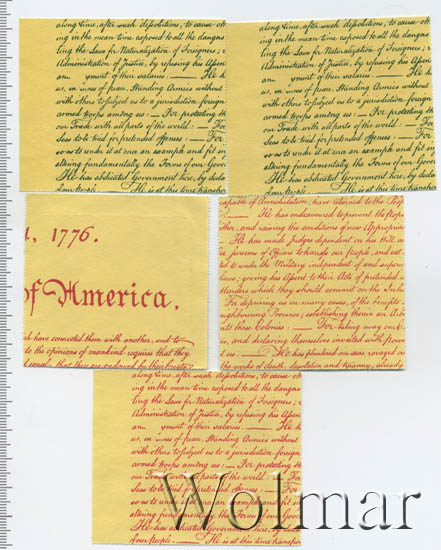 along time, after such dissolutions, to cause oth
ing in the mean time exposed to all the dangers
ling the Laws for Naturalization of Foreigners; r
Administration of Justice, by refusing his Assen
an yment of their salaries. — He h
us, in times of peace, Standing Armies without
with others to subject us to a jurisdiction foreign
armed troops among us: — For protecting th
our Trade with all parts of the world: — For
Seas to be tried for pretended offences: — For
so as to render it at once an example and fit in
altering fundamentally the Forms of our Gover
He has abdicated Government here, by decla
of our people. — He is at this time transpor
along time, after such dissolutions, to cause oth
ing in the mean time exposed to all the dangers
ling the Laws for Naturalization of Foreigners; r
Administration of Justice, by refusing his Assen
an yment of their salaries. — He h
us, in times of peace, Standing Armies without
with others to subject us to a jurisdiction foreign
armed troops among us: — For protecting th
our Trade with all parts of the world: — For
Seas to be tried for pretended offences: — For
so as to render it at once an example and fit in
altering fundamentally the Forms of our Gover
He has abdicated Government here, by decla
of our people. — He is at this time transpor
4, 1776.
of America,
which have connected them with another, and to
to the opinions of mankind requires that they
equal, that they are endowed by their Creator
capable of Annihilation, have returned to the Peop
He has endeavoured to prevent the
ther, and raising the conditions of new Appropria
He has made Judges dependent on his Will al
swarms of Officers to harass our People, and eat
ed to render the Military independent of and superio
laws; giving his Assent to their Acts of pretended
Murders which they should commit on the Inha
For depriving us in many cases, of the benefits
neighbouring Province, establishing therein an Arbi
into these Colonies: — For taking away our
and declaring themselves invested with power
t us. — He has plundered our seas, ravaged our
the works of death, desolation and tyranny, already
along time, after such dissolutions, to cause oth
ing in the mean time exposed to all the dangers
ling the Laws for Naturalization of Foreigners; r
Administration of Justice, by refusing his Assen
an yment of their salaries. — He h
us, in times of peace, Standing Armies without
with others to subject us to a jurisdiction foreign
armed troops among us: — For protecting th
our Trade with all parts of the world: — For
Seas to be tried for pretended offences: — For
so as to render it at once an example and fit in
altering fundamentally the Forms of our Gover
He has abdicated Government here, by decla
of our people. — He is at this time transpor
Wolmar